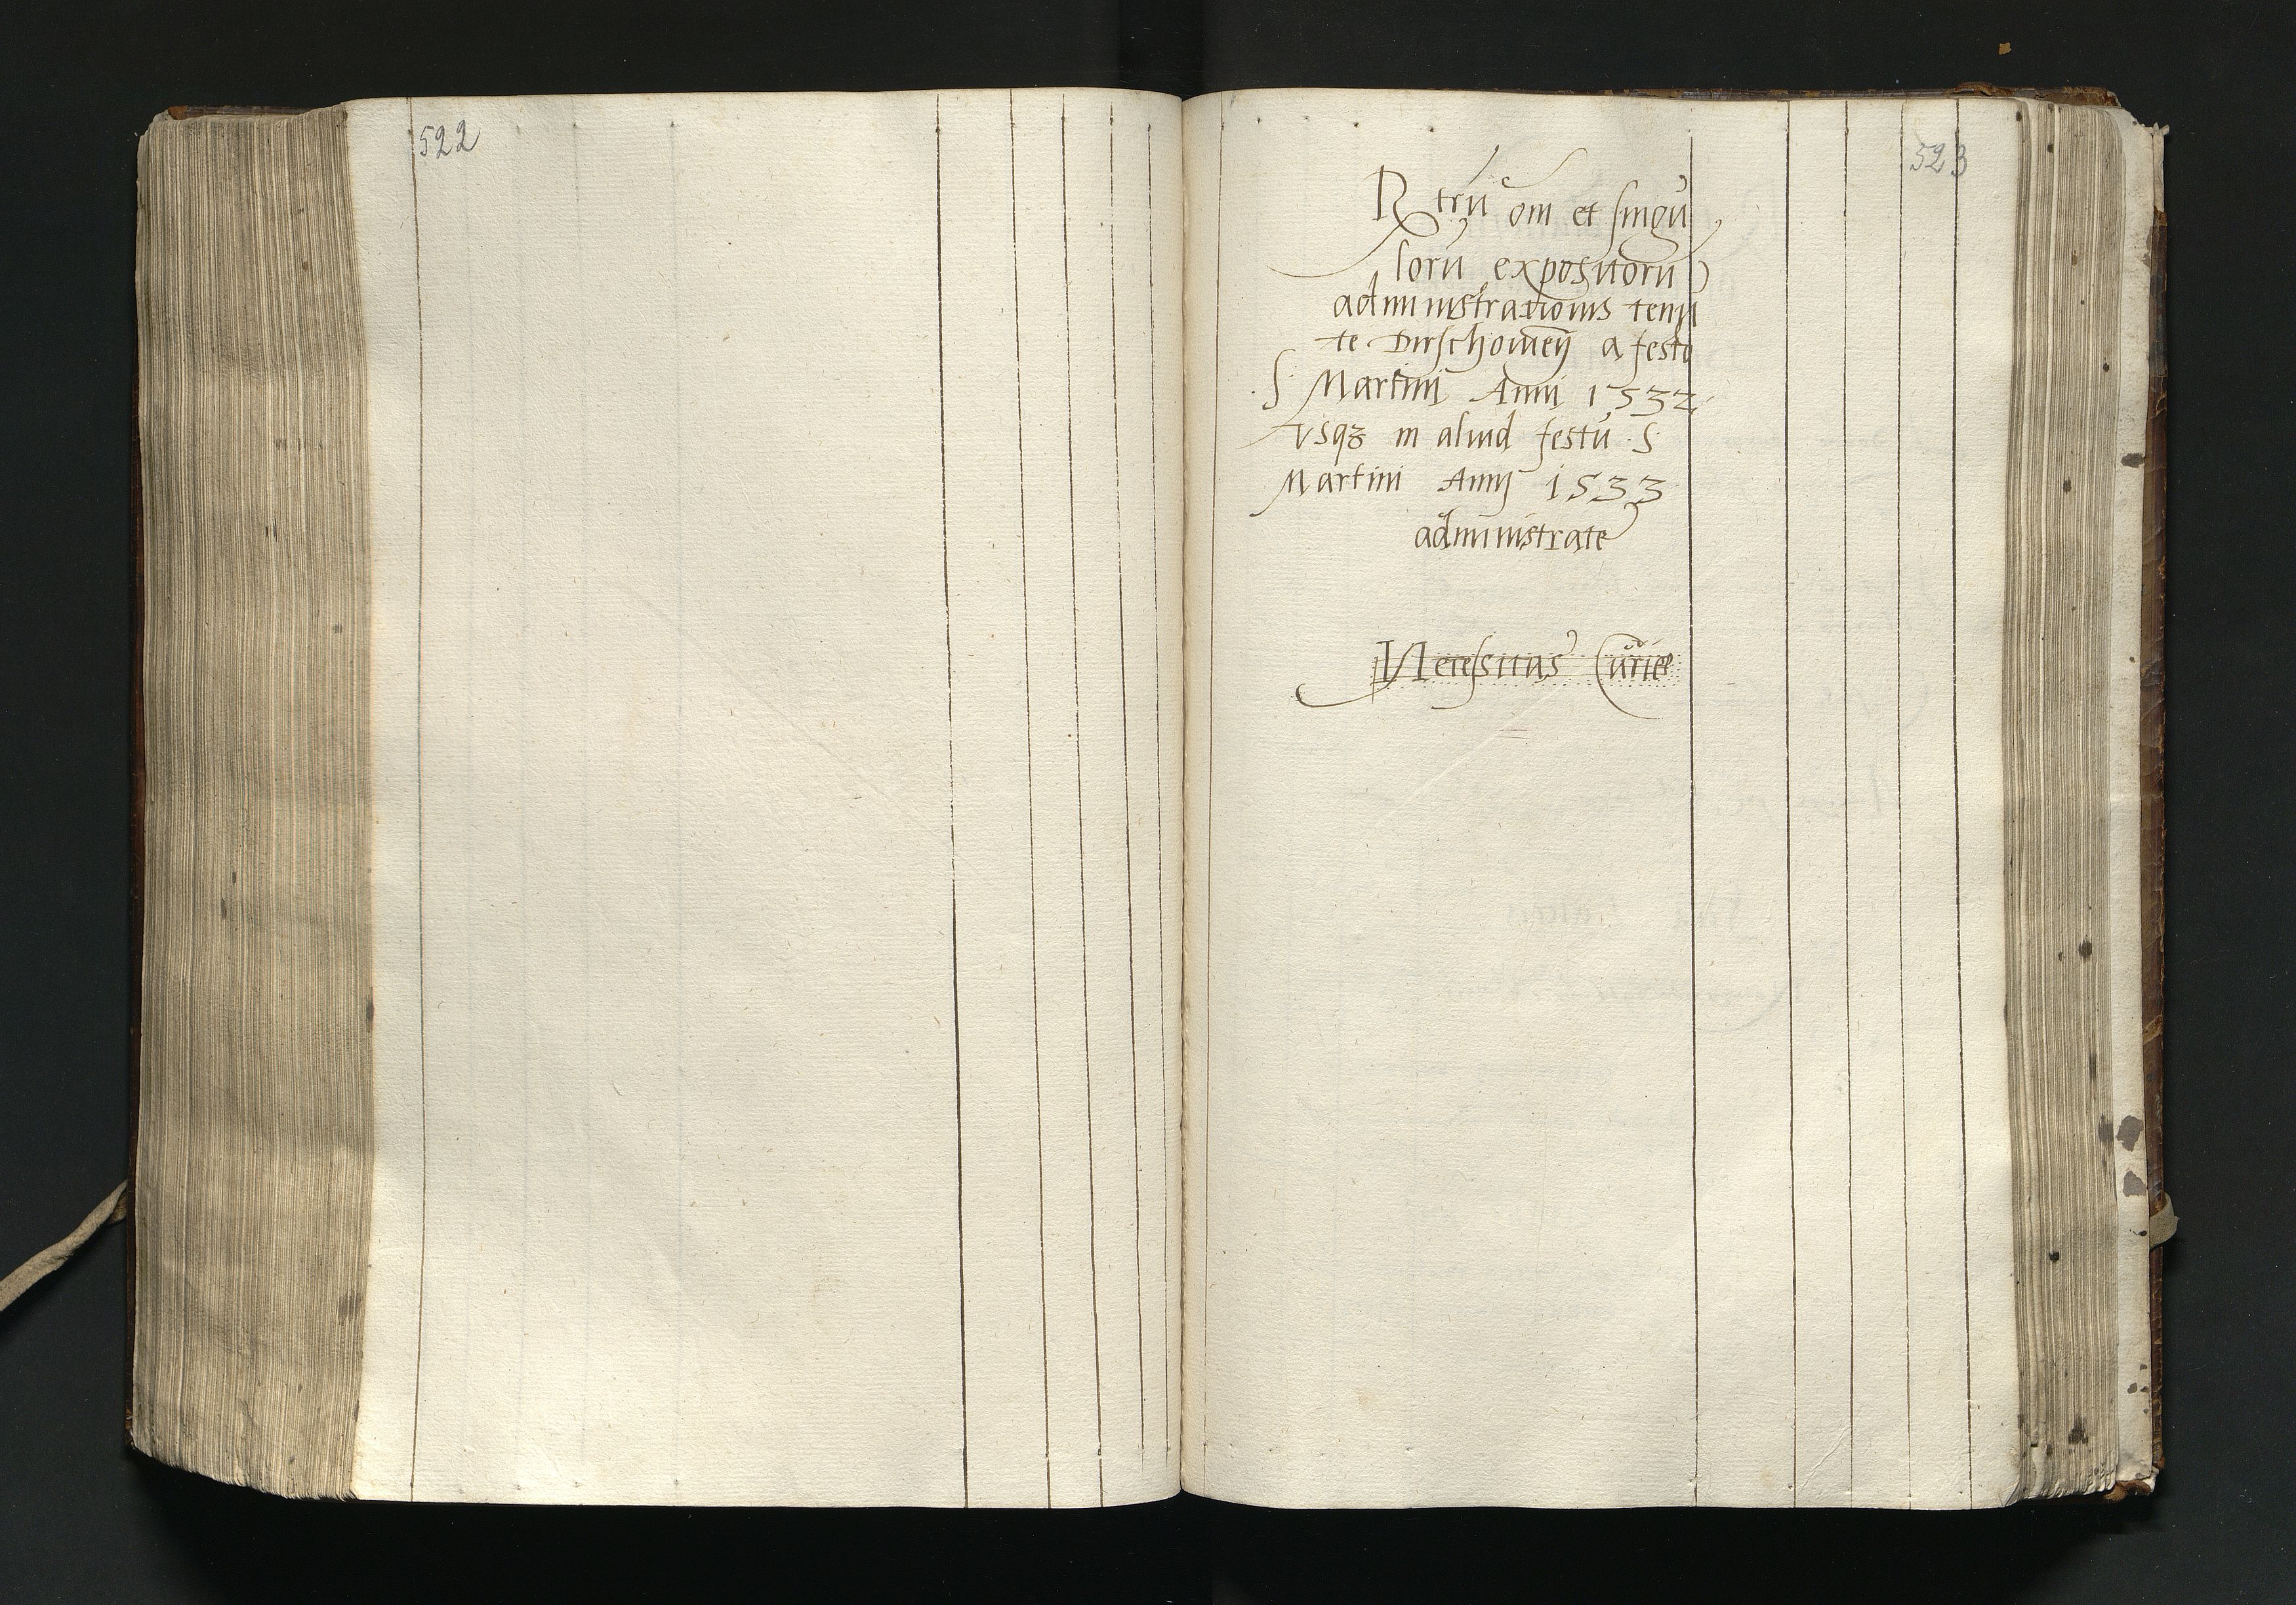 522
523
Rtrũ om̃ et singu
lorũ expositorũ
administrationis tenu
te Dirschoviẽn a festo
S. Martini Anni 1532
vsqz in aliud festũ S.
Martini Anni 1533
administrate
Necessitas Curie